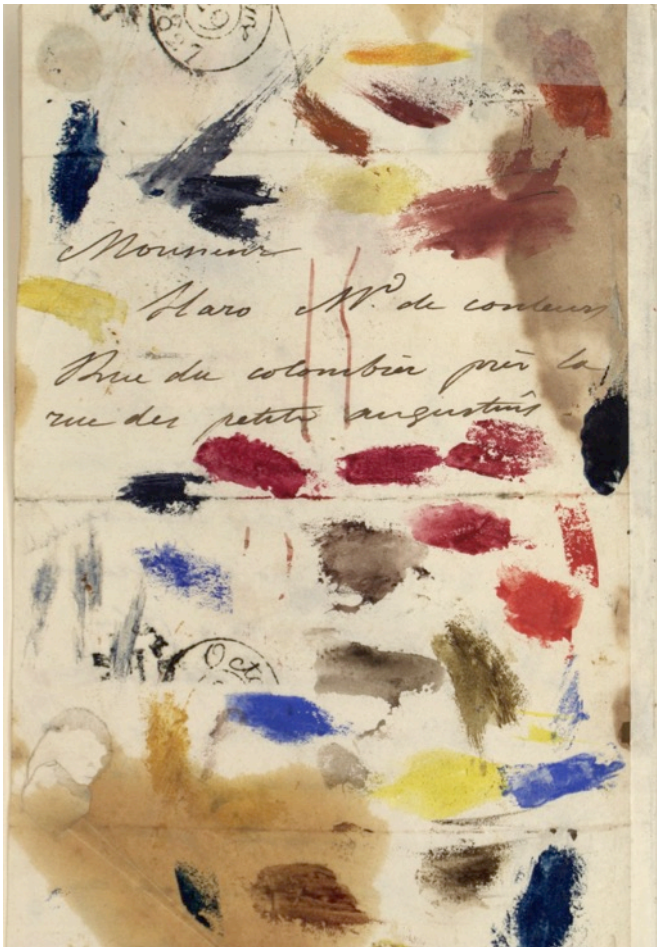 Monsieur
Haro Md. de couleurs
Rue du colombier près la
rue des petits augustins
Octo